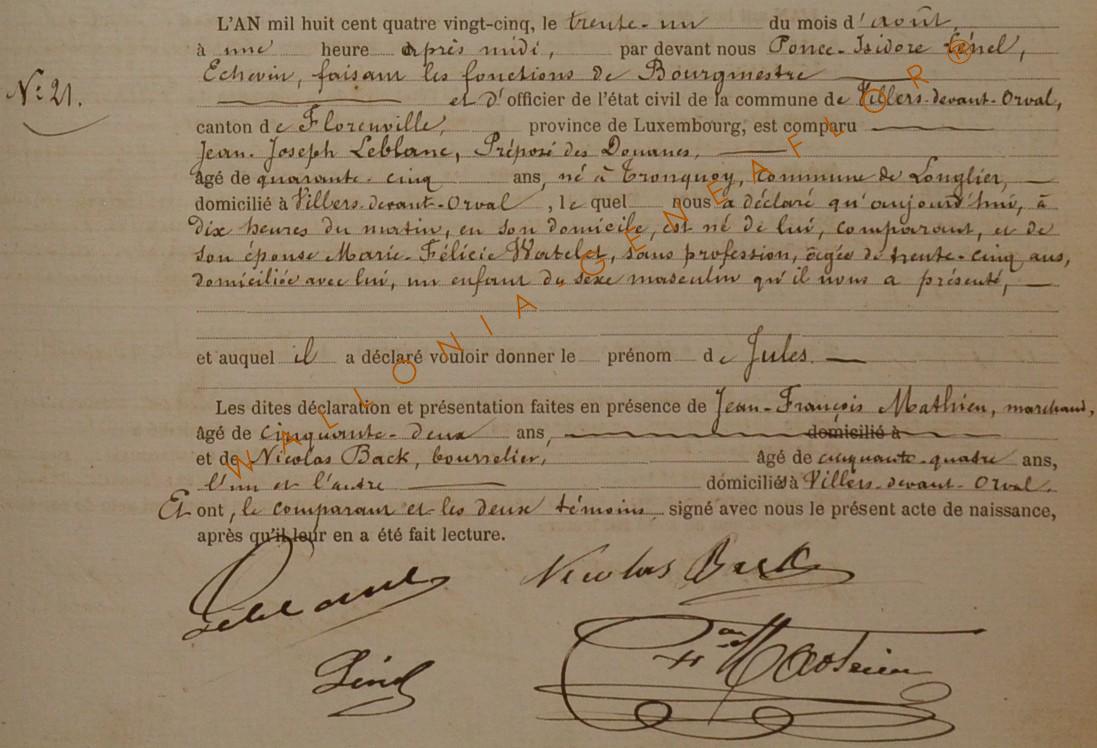 L'AN mil huit cent quatre vingt-cinq, le trente-un du mois d'août,
à une heure après midi, par devant nous Ponce-Isidore
Echevin, faisant les fonctions de Bourgmestre
N° 21.
et d'officier de l'état civil de la commune de Villers-devant-Orval,
canton de Florenville, province de Luxembourg, est comparu
Jean-Joseph Leblanc, Préposé des Douanes,
âgé de quarante-cinq ans, né à Tronquoy, commune de Longlier,
domicilié à Villers-devant-Orval, lequel nous a déclaré qu'aujourd'hui, à
dix heures du matin, en son domicile, est né de lui, comparant, et de
son épouse Marie-Félicie Watelet, sans profession, âgée de trente-cinq ans,
domiciliée avec lui, un enfant du sexe masculin qu'il nous a présenté,
et auquel il a déclaré vouloir donner le prénom de Jules.
Les dites déclaration et présentation faites en présence de Jean-François Mathieu, marchand,
âgé de cinquante-deux ans, domicilié à
et de Nicolas Back, bourrelier, âgé de cinquante-quatre ans,
l'un et l'autre domiciliés à Villers-devant-Orval.
Et ont, le comparant et les deux témoins signé avec nous le présent acte de naissance,
après qu'il leur en a été fait lecture.
Leblanc
Nicolas Back
Mathieu
WALLONIA GENEAFLOR®